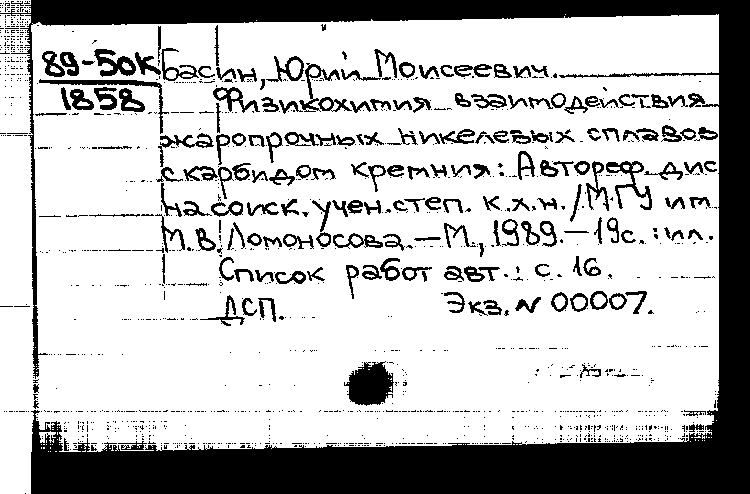 89-50к Басин, Юрий Моисеевич.
1858 Физикохимия взаимодействия
жаропрочных никелевых сплавов
с карбидом кремния: Автореф. дис
на соиск. учен. степ. к.х.н. / МГУ им
М.В. Ломоносова. — М., 1989. — 19с. : ил.
Список работ авт.: с. 16.
ДСП. Экз. N 00007.